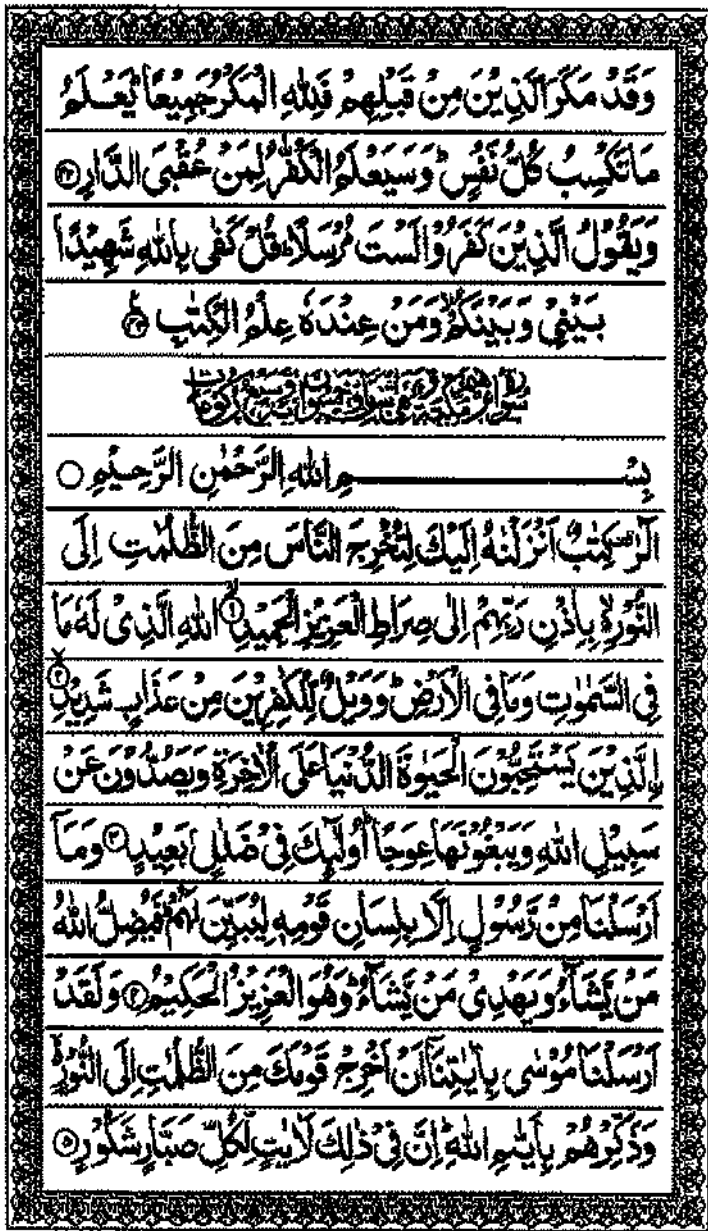 وَقَدْ مَكَرَ الَّذِيْنَ مِنْ قَبْلِهِمْ فَلِلّٰهِ الْمَكْرُ جَمِيْعًا ؕ يَعْلَمُ
مَا تَكْسِبُ كُلُّ نَفْسٍ ؕ وَسَيَعْلَمُ الْكُفّٰرُ لِمَنْ عُقْبَى الدَّارِ ﴿۴۲﴾
وَيَقُوْلُ الَّذِيْنَ كَفَرُوْا لَسْتَ مُرْسَلًا ؕ قُلْ كَفٰى بِاللّٰهِ شَهِيْدًۢا
بَيْنِيْ وَبَيْنَكُمْ ۙ وَمَنْ عِنْدَهٗ عِلْمُ الْكِتٰبِ ﴿۴۳﴾
سورة ابرٰهيم مكية وخمسون اية وسبع ركوعات
بِسْمِ اللّٰهِ الرَّحْمٰنِ الرَّحِيْمِ ○
الٓرٰ ۟ كِتٰبٌ اَنْزَلْنٰهُ اِلَيْكَ لِتُخْرِجَ النَّاسَ مِنَ الظُّلُمٰتِ اِلَى
النُّوْرِ ۙ بِاِذْنِ رَبِّهِمْ اِلٰى صِرَاطِ الْعَزِيْزِ الْحَمِيْدِ ﴿۱﴾ اللّٰهِ الَّذِيْ لَهٗ مَا
فِي السَّمٰوٰتِ وَمَا فِي الْاَرْضِ ؕ وَوَيْلٌ لِّلْكٰفِرِيْنَ مِنْ عَذَابٍ شَدِيْدِ ﴿۲﴾
اِلَّذِيْنَ يَسْتَحِبُّوْنَ الْحَيٰوةَ الدُّنْيَا عَلَى الْاٰخِرَةِ وَيَصُدُّوْنَ عَنْ
سَبِيْلِ اللّٰهِ وَيَبْغُوْنَهَا عِوَجًا ؕ اُولٰٓئِكَ فِيْ ضَلٰلٍۭ بَعِيْدٍ ﴿۳﴾ وَمَآ
اَرْسَلْنَا مِنْ رَّسُوْلٍ اِلَّا بِلِسَانِ قَوْمِهٖ لِيُبَيِّنَ لَهُمْ ؕ فَيُضِلُّ اللّٰهُ
مَنْ يَّشَآءُ وَيَهْدِيْ مَنْ يَّشَآءُ ؕ وَهُوَ الْعَزِيْزُ الْحَكِيْمُ ﴿۴﴾ وَلَقَدْ
اَرْسَلْنَا مُوْسٰى بِاٰيٰتِنَآ اَنْ اَخْرِجْ قَوْمَكَ مِنَ الظُّلُمٰتِ اِلَى النُّوْرِ ۙ
وَذَكِّرْهُمْ بِاَيّٰىمِ اللّٰهِ ؕ اِنَّ فِيْ ذٰلِكَ لَاٰيٰتٍ لِّكُلِّ صَبَّارٍ شَكُوْرٍ ﴿۵﴾